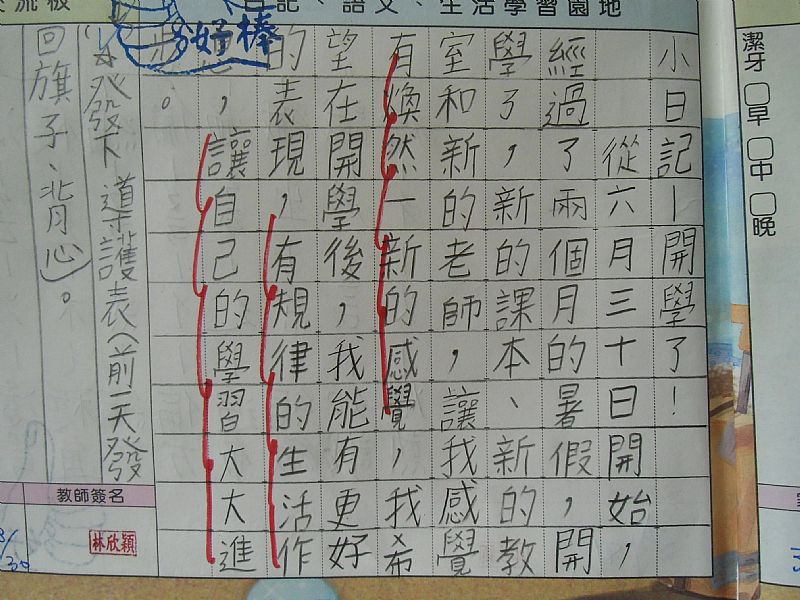 日記、語文、生活學習園地
流板
潔牙 □早 □中 □晚
小日記—開學了!
從六月三十日開始,
經過了兩個月的暑假,開
學了,新的課本、新的教
室和新的老師,讓我感覺
有煥然一新的感覺,我希
望在開學後,我能有更好
的表現,有規律的生活作
,讓自己的學習大大進
。
好棒
發下導護表(前一天發
回旗子、背心)。
教師簽名
林欣穎